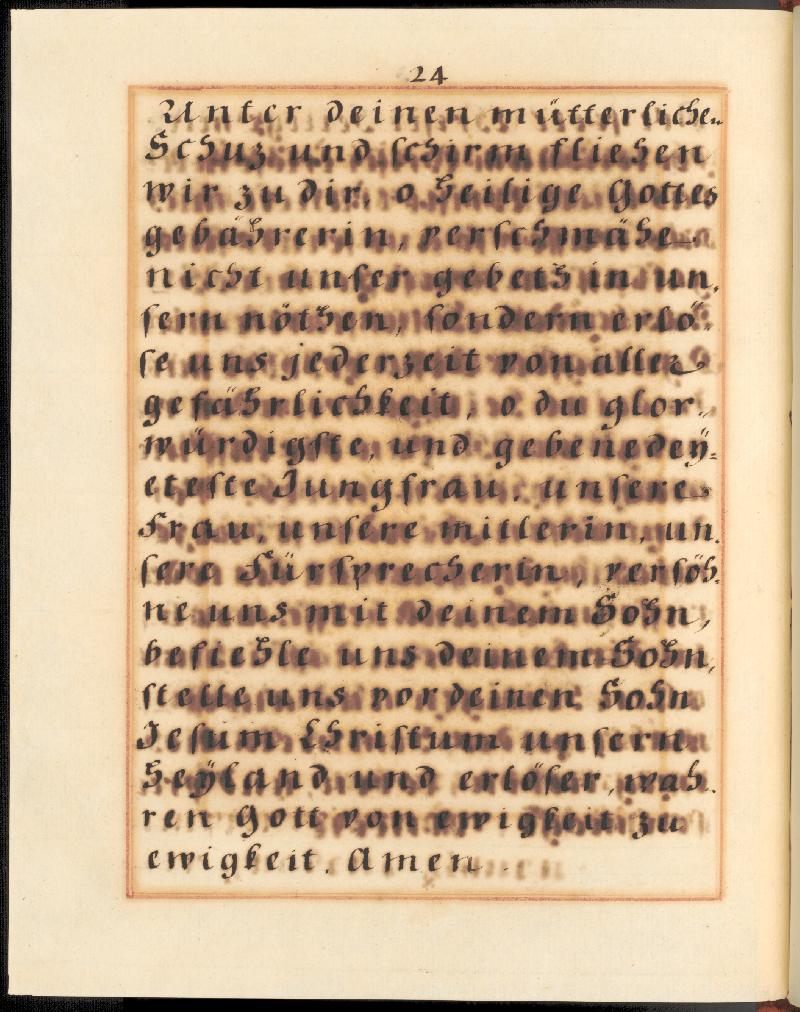 24
Unter deinen mütterliche„
Schuz und ſchirm fliehen
wir zu dir, o heilige Gottes
gebährerin, verſchmähe
nicht unſer gebeth in un„
ſern nöthen, ſondern erlö„
ſe uns jederzeit von aller
gefährlichkeit, o du glor„
würdigſte, und gebenedeÿ„
eteſte Jungfrau, unſere
Frau, unſere mitlerin, un„
ſere Fürſprecherin, verſöh„
ne uns mit deinem Sohn,
befiehle uns deinem Sohn,
ſtelle uns vor deinen Sohn
Jeſum Chriſtum unſern
Heÿland und erlöſer, wah„
ren Gott von ewigkeit zu
ewigkeit. Amen.